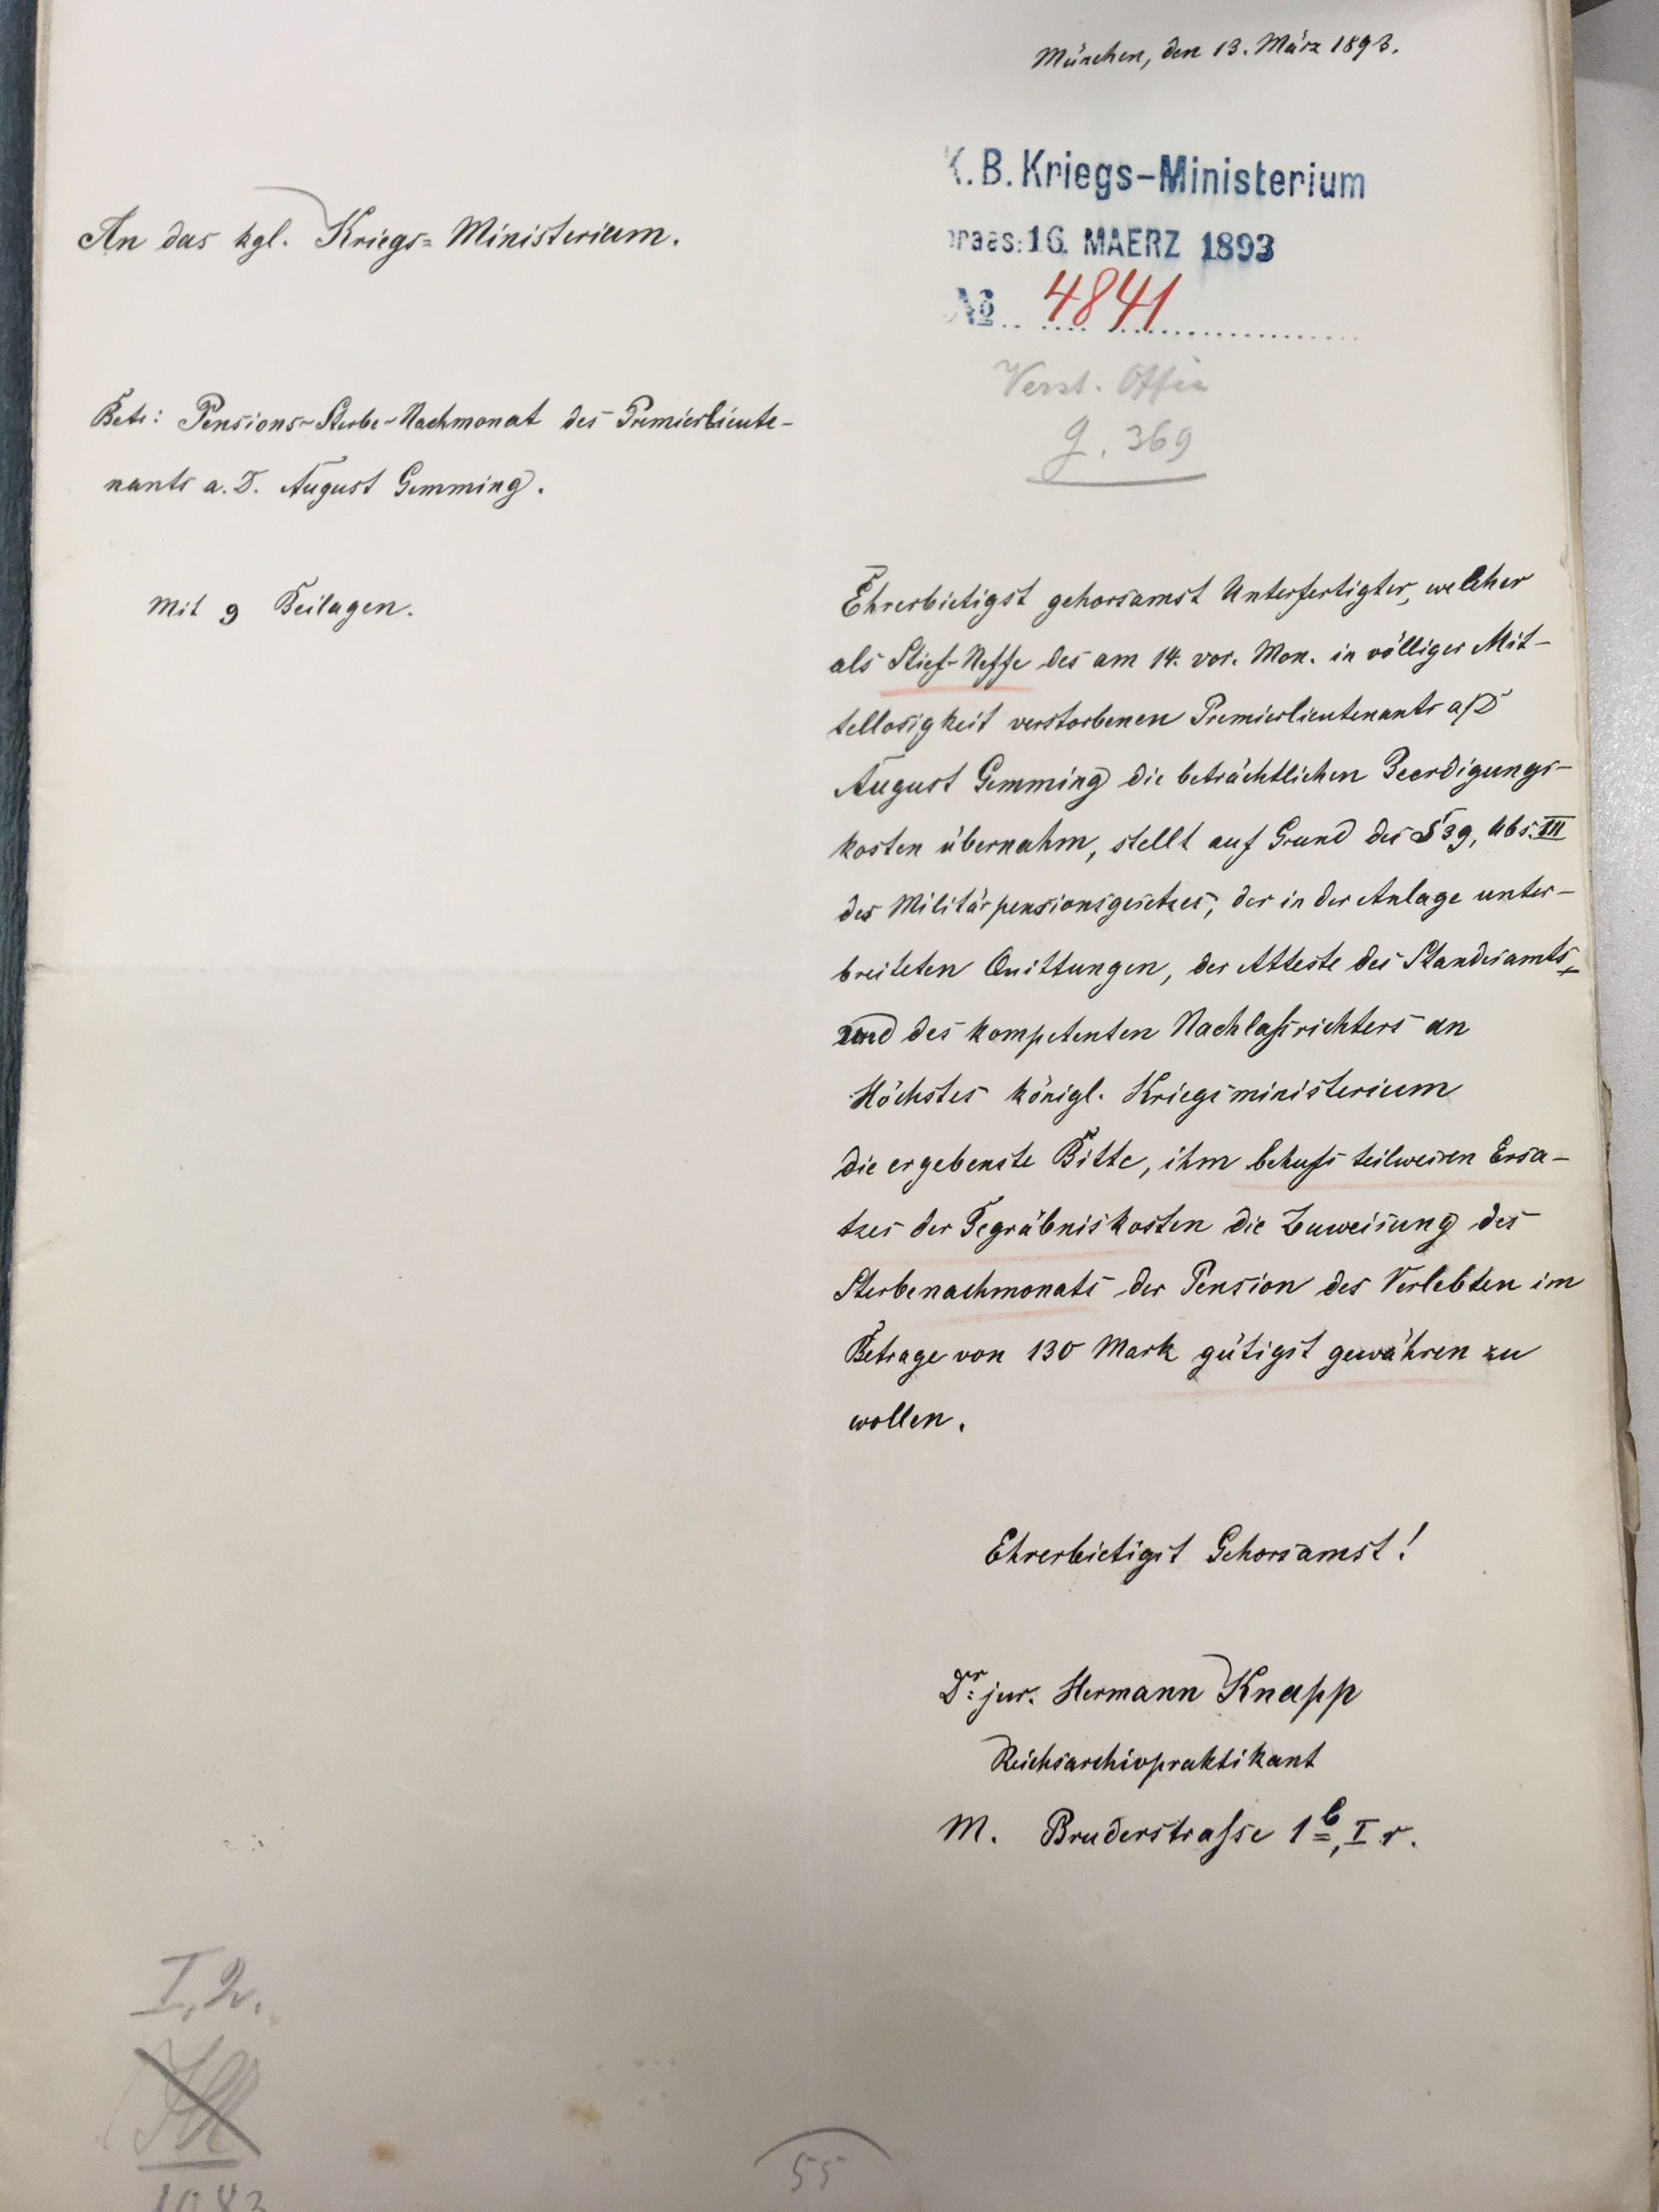 München, den 13. März 1893.
K. B. Kriegs-Ministerium
praes: 16. MAERZ 1893
No 4841
Verst. Offiz
G. 369
An das kgl. Kriegs=Ministerium.
Betr: Pensions-Sterbe-Nachmonat des Premierlieute-
nants a. D. August Gemming.
Mit 9 Beilagen.
Ehrerbietigst gehorsamst Unterfertigter, welcher
als Stief-Neffe des am 14. vor. Mon. in völliger Mit-
tellosigkeit verstorbenen Premierlieutenants a/D
August Gemming die beträchtlichen Beerdigungs-
kosten übernahm, stellt auf Grund des §39, Abs. III
des Militärpensionsgesetzes, der in der Anlage unter-
breiteten Quittungen, der Atteste des Standesamts,
und des kompetenten Nachlaßrichters an
Höchstes königl. Kriegsministerium
die ergebenste Bitte, ihm behufs teilweisen Ersa-
tzes der Begräbniskosten die Zuweisung des
Sterbenachmonats der Pension des Verlebten im
Betrage von 130 Mark gütigst gewähren zu
wollen.
Ehrerbietigst Gehorsamst!
Dr. jur. Hermann Knapp
Reichsarchivpraktikant
M. Bruderstraße 1b, I r.
I, 2.
55